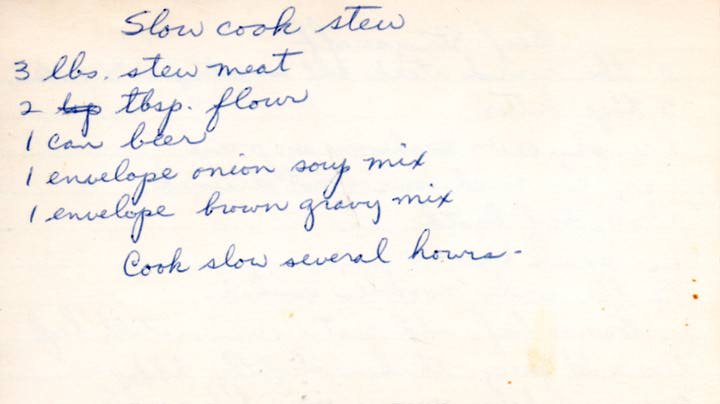 Slow cook stew
3 lbs. stew meat
2 tbsp. flour
1 can beer
1 envelope onion soup mix
1 envelope brown gravy mix
Cook slow several hours-